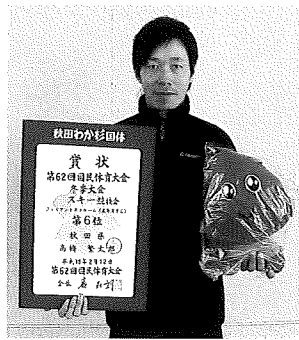 秋田わか杉国体
賞状
第62回国民体育大会
冬季大会
スキー競技会
第6位
秋田県
高橋 繁太
平成19年2月12日
第62回国民体育大会
会長